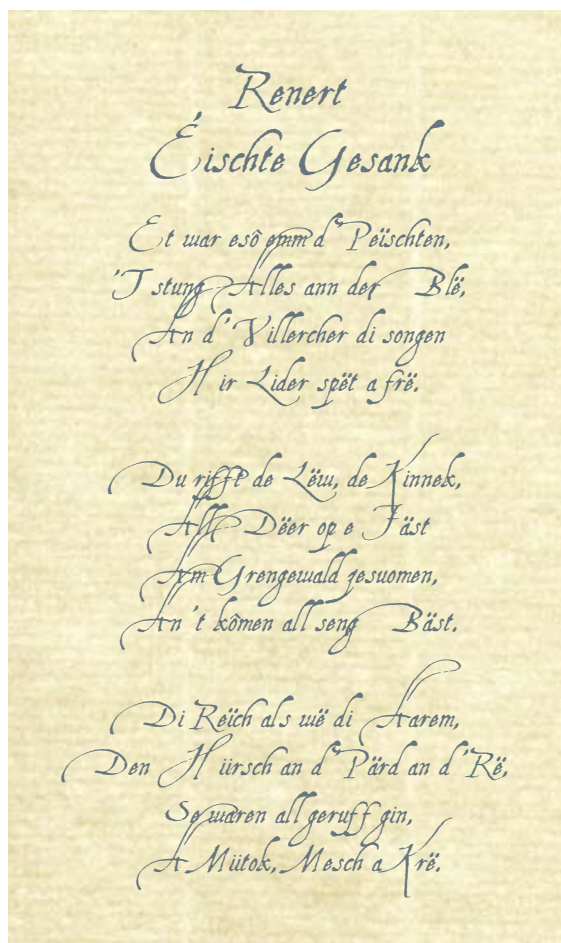 Renert
Éischte Gesank
Et war esô emm d'Peïschten,
'T stung Alles ann der Blë,
An d'Villercher di songen
Hir Lider spët a frë.
Du rifft de Lëw, de Kinnek,
All Dëer op e Fäst
Am Grengewald zesuomen,
An 't kômen all seng Bäst.
Di Reïch als wë di Aarem,
Den Hiirsch an d'Pärd an d'Rë,
Se waren all geruff gin,
A Miitok, Mesch a Krë.